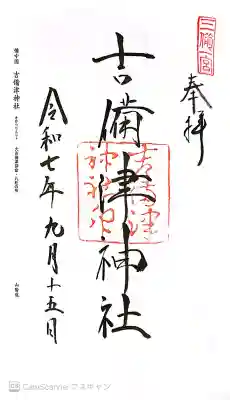 三備宮
奉拝
吉備津神社
吉備津
神社
令和七年九月十五日
備中国 吉備津神社
CamScanner でスキャン